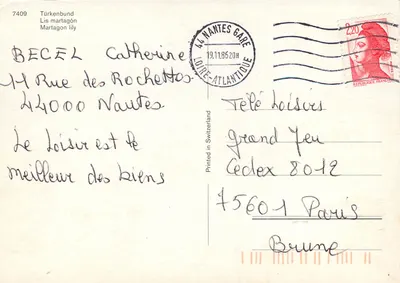 7409
Türkenbund
Lis martagón
Martagon lily
BECEL Catherine
11 Rue des Rochettes
44000 Nantes
Le Loisir est le
meilleur des biens
Printed in Switzerland
44 NANTES GARE
19.11.85 20H
LOIRE-ATLANTIQUE
2,20
Télé Loisirs
Grand Jeu
Cedex 8012
75601 Paris
Brune